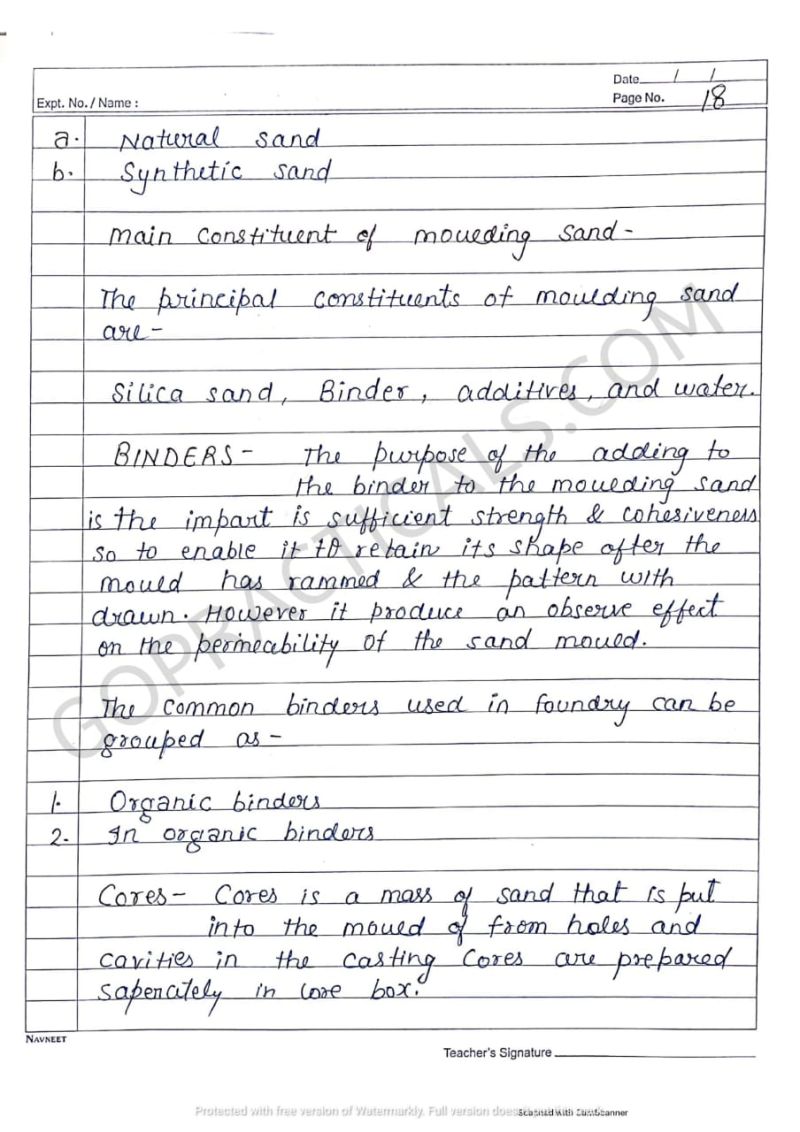 Date / /
Expt. No. / Name :
Page No. 18
a. Natural sand
b. Synthetic sand
Main constituent of moueding sand -
The principal constituents of moulding sand
are -
Silica sand, Binder, additives, and water.
BINDERS - The purpose of the adding to
the binder to the moueding sand
is the impart is sufficient strength & cohesiveness
so to enable it to retain its shape after the
mould has rammed & the pattern with
drawn. However it produce an observe effect
on the permeability of the sand moued.
The common binders used in foundry can be
grouped as -
1. Organic binders
2. In organic binders
Cores - Cores is a mass of sand that is put
into the moued of from holes and
cavities in the casting Cores are prepared
saperately in core box.
NAVNEET
Teacher's Signature
GOPRACTICALS.COM
Protected with free version of Watermarkly. Full version does
Scanned with CamScanner